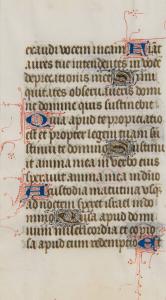 exaudi vocem meam Fiāt
aures tue intendentes in vocē
deprecationis mee Si ini
quitates observaveris domi
ne domine quis sustinebit
Quia apud te propiciatio
est et propter legem tuam su
stinui te domine Sustinuit
anima mea in verbo eius
speravit anima mea in dn̄o
A custodia matutina usqȝ
ad noctem speret israel in do
mino Quia apud domi
num misericordia et copio
sa apud eum redemptio Et